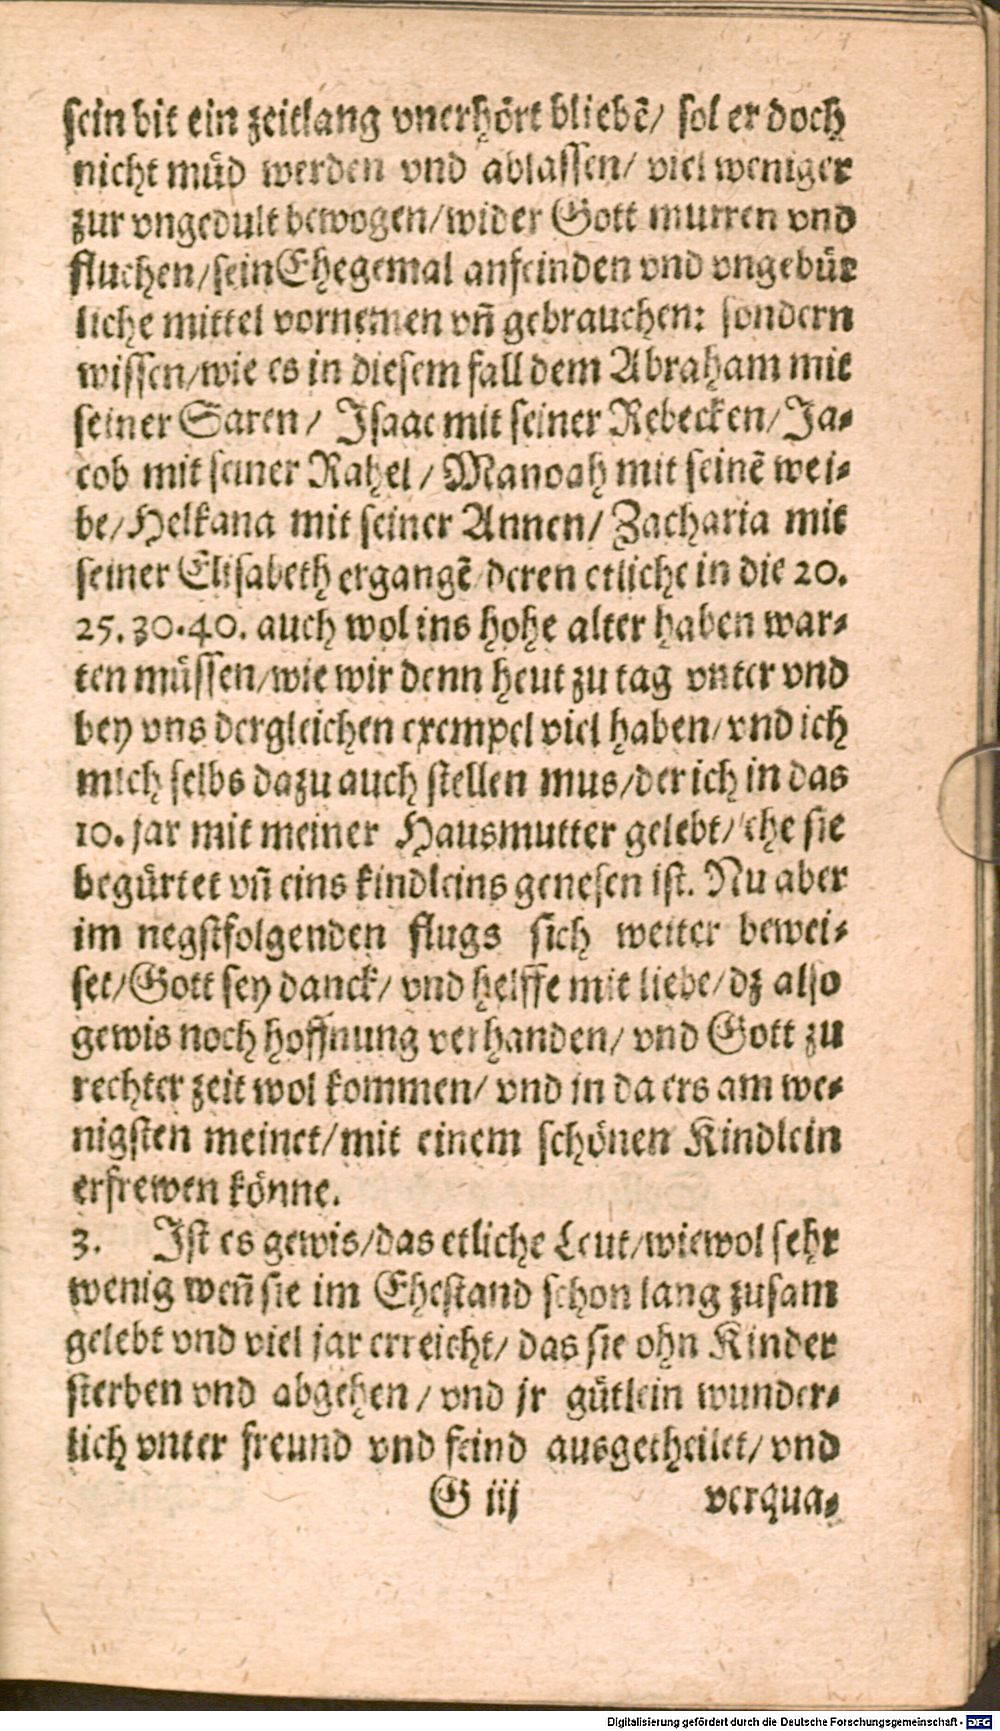 sein bit ein zeitlang vnerhört bliebẽ/ sol er doch
nicht müd werden vnd ablassen/ viel weniger
zur vngedult bewogen/wider Gott murren vnd
fluchen/sein Ehegemal anfeinden vnd vngebür
liche mittel vornemen vñ gebrauchen: sondern
wissen/wie es in diesem fall dem Abraham mit
seiner Saren/ Isaac mit seiner Rebecken/Ja-
cob mit seiner Rahel/ Manoah mit seinẽ wei-
be/Helkana mit seiner Annen/ Zacharia mit
seiner Elisabeth ergangẽ/deren etliche in die 20.
25.30.40. auch wol ins hohe alter haben war-
ten müssen/wie wir denn heut zu tag vnter vnd
bey vns dergleichen exempel viel haben/vnd ich
mich selbs dazu auch stellen mus/der ich in das
10. jar mit meiner Hausmutter gelebt/ehe sie
begürtet vñ eins kindleins genesen ist. Nu aber
im negstfolgenden flugs sich weiter bewei-
set/Gott sey danck/ vnd helffe mit liebe/dz also
gewis noch hoffnung verhanden/ vnd Gott zu
rechter zeit wol kommen/ vnd jn da ers am we-
nigsten meinet/mit einem schönen Kindlein
erfrewen könne.
3. Ist es gewis/das etliche Leut/wiewol sehr
wenig weñ sie im Ehestand schon lang zusam
gelebt vnd viel jar erreicht/ das sie ohn Kinder
sterben vnd abgehen/ vnd jr gütlein wunder-
lich vnter freund vnd feind ausgetheilet/ vnd
G iij verqua-
Digitalisierung gefördert durch die Deutsche Forschungsgemeinschaft - DFG